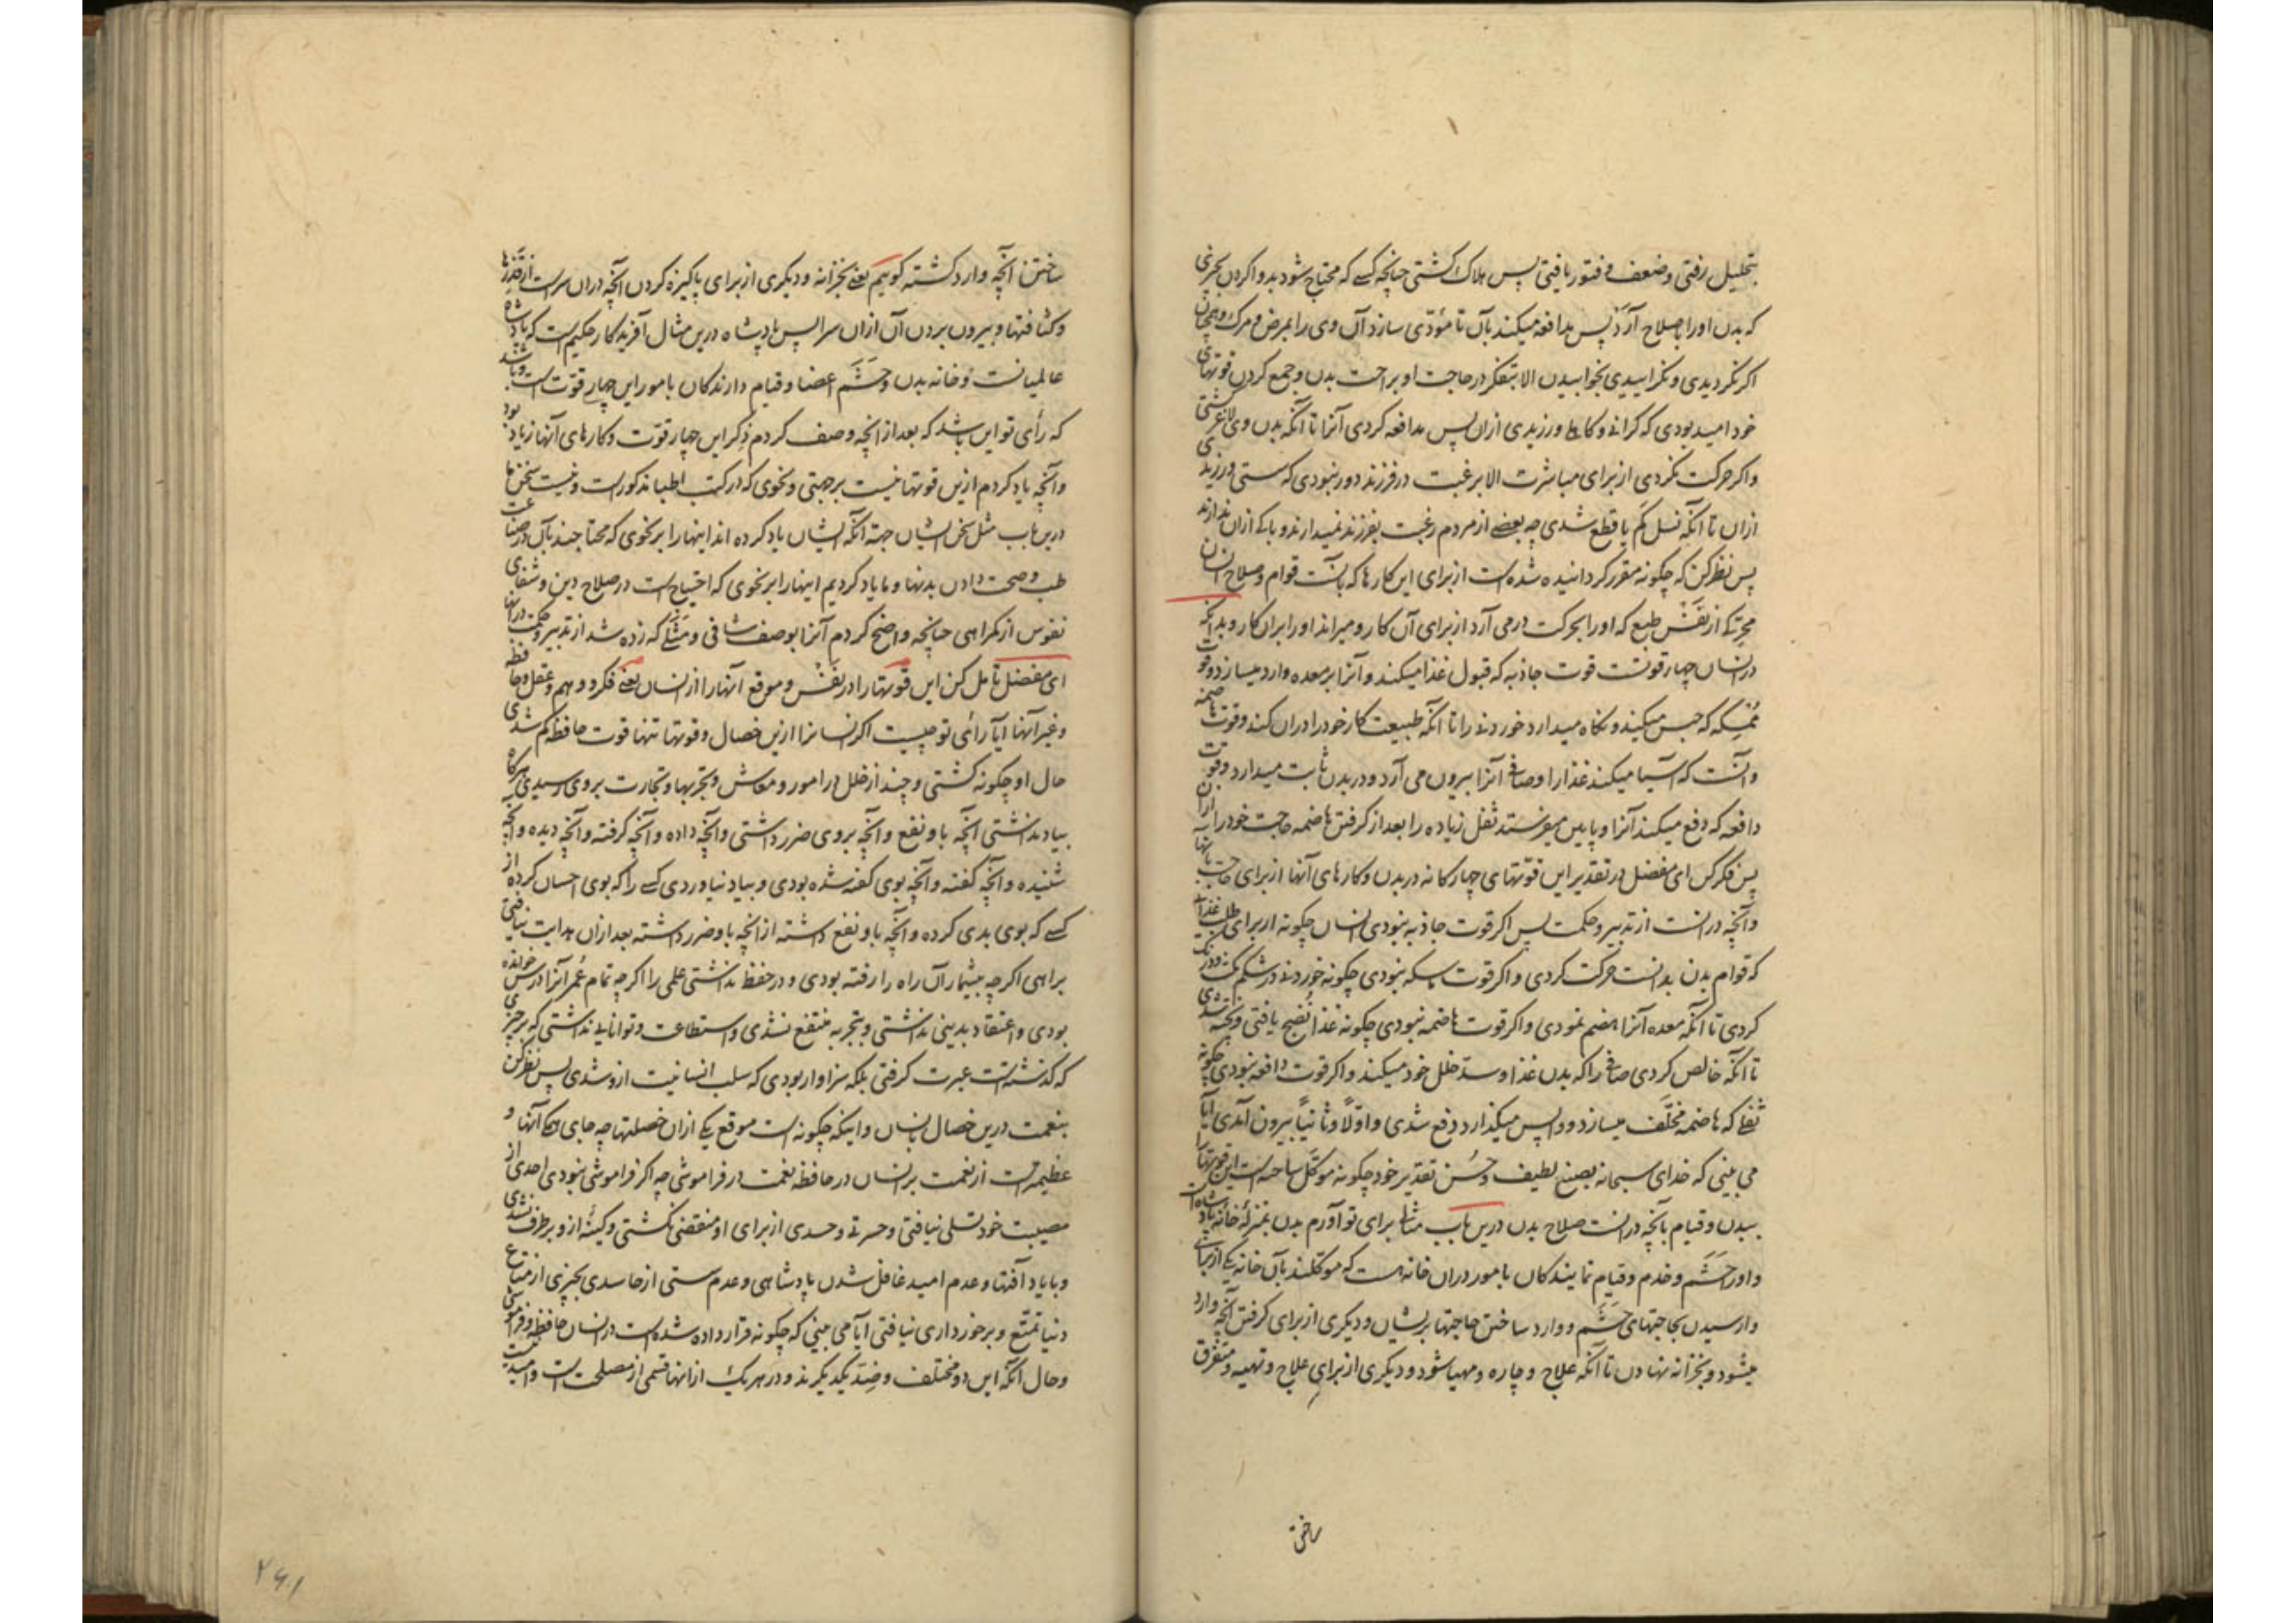 بتحلیل رفتی و ضعف و فتور یافتی پس هلاک کشتی چنانچه کسے که محتاج شود بدوا کردن بچیزی
که بدن اورا باصلاح آرد پس مدافعه میکند بآن تا مؤدّی سازد آن وی را بمرض و مرک و همچنان
اکر نکردیدی و نکراییدی بخوابیدن الا بتفکر در حاجت او براحت بدن و جمع کردن قوتهای
خود امید بودی که کرانی و کاهلی ورزیدی ازان پس مدافعه کردی آنرا تا آنکه بدن وی لاغر کشتی
و اکر حرکت نکردی از برای مباشرت الا برغبت در فرزند دور نبودی که سستی ورزیدی
ازان تا آنکه نسل کم یا قطع شدی چه بعضے از مردم رغبت بفرزند نمیدارند و باکے ازان ندارند
پس نظر کن که چکونه مقرر کردانیده شده است از برای این کارها که بآنست قوام و صلاح انسان
محرّکے از نَفَس طبع که اورا بحرکت درمی آرد از برای آن کار و میراند اورا بران کار و بدانکه
در انسان چهار قوتست قوت جاذبه که قبول غذا میکند و آنرا بر معده وارد میسازد و قوت
مُمسِکه که حبس میکند و نکاه میدارد خوردنی را تا آنکه طبیعت کار خود را دران کند و قوت هاضمه
و آنست که آسیا میکند غذا را و صافی آنرا بیرون می آرد و در بدن ثابت میدارد و قوت
دافعه که دفع میکند آنرا و پایین میفرستد ثفل زیاده را بعد از کرفتن هاضمه حاجت خود را ازان
پس فکر کن ای مفضل در تقدیر این قوّتهای چهارکانه در بدن و کارهای آنها از برای حاجت بآنها
و آنچه درانست از تدبیر و حکمت پس اکر قوت جاذبه نبودی انسان چکونه از برای طلب غذائی
که قوام بدن بدانست حرکت کردی و اکر قوت ماسکه نبودی چکونه خوردنی در شکم مکث و درنک
کردی تا آنکه معده آنرا هضم نمودی و اکر قوت هاضمه نبودی چکونه غذا نُضج یافتی و پخته شدی
تا آنکه خالص کردی صافی را که بدن غذا و سدّ خلل خود میکند و اکر قوت دافعه نبودی چکونه
ثفلے که هاضمه مخلّف میسازد و واپس میکذارد دفع شدی و اوّلاً و ثانیاً بیرون آمدی آیا
می بینی که خدای سبحانه بصنع لطیف و حُسن تقدیر خود چکونه موکّل ساخته است این قوتها را
ببدن و قیام بآنچه درانست صلاح بدن درین باب مثالے برای تو آورم بدن بمنزلهٔ خانهٔ پادشاه است
و اورا حَشَم و خدم و قیام نمایندکان بامور دران خانه هست که موکلند بآن خانه یکے از برای
وارسیدن بحاجتهای حَشَم و وارد ساختن حاجتها بر ایشان و دیکری از برای کرفتن آنچه وارد
میشود و بخزانه نهادن تا آنکه علاج و چاره و مهیا شود و دیکری از برای علاج و تهیه و متفرق
ساختن
ساختن آنچه وارد کشته کوییم یعنے بخزانه و دیکری از برای پاکیزه کردن آنچه دران سراست از قذرها
و کثافتها و بیرون بردن آن ازان سرا پس پادشاه درین مثال آفریدکار حکیم است که پادشاه
عالمیانست و خانه بدن و حَشَم اعضا و قیام دارندکان بامور این چهار قوّت است و باشد
که رأی تو این باشد که بعد از آنچه وصف کردم ذِکر این چهار قوّت و کارهای آنها زیاد بود
و آنچه یاد کردم ازین قوتها نیست بر جهتی و نحوی که در کتب اطبا مذکور است و نیست سخن ما
درین باب مثل سخن ایشان جهة آنکه ایشان یاد کرده اند اینها را بر نحوی که محتاجند بآن در صناعت
طب و صحت دادن بدنها و ما یاد کردیم اینها را بر نحوی که احتیاج است در صلاح دین و شفای
نفوس از کمراهی چنانچه واضح کردم آنرا بوصف شافی و مَثَلے که زده شد از تدبیر و حکمت در آنها
ای مفضل تأمل کن این قوتها را در نَفْس و موقع آنها را از انسان یعنے فکر و وهم و عقل و حافظه
و غیر آنها آیا رأی تو چیست اکر انسانرا ازین خصال و قوتها تنها قوت حافظه کم شدی
حال او چکونه کشتی و چند از خلل در امور و معاش و تجربها و تجارت بر وی رسیدی هرکاه
بیاد نداشتی آنچه باو نفع و آنچه بر وی ضرر داشتی و آنچه داده و آنچه کرفته و آنچه دیده و آنچه
شنیده و آنچه کفته و آنچه بوی کفته شده بودی و بیاد نیاوردی کسے را که بوی احسان کرده از
کسے که بوی بدی کرده و آنچه باو نفع داشته از آنچه باو ضرر داشته بعد ازان هدایت نیافتی
براهی اکرچه بیشمار آن راه را رفته بودی و در حفظ نداشتی علمی را اکرچه تمام عُمر آنرا درس خوانده
بودی و اعتقاد بدینی نداشتی و بتجربه منتفع نشدی و استطاعت و توانایی نداشتی که بر چیزی
که کذشته است عبرت کرفتی بلکه سزاوار بودی که سلب انسانیت ازو شدی پس نظر کن
بنعمت درین خصال بانسان و اینکه چکونه است موقع یکے ازان خصلتها چه جای همکی آنها و
عظیمتر است از نعمت بر انسان در حافظه نعمت در فراموشی چه اکر فراموشی نبودی احدی از
مصیبت خود تسلی نیافتی و حسرتے و حسدی از برای او منقضی نکشتی و کینهٔ ازو بر طرف نشدی
و با یاد آفتها و عدم امید غافل شدن پادشاهی و عدم سستی از حاسدی بچیزی از متاع
دنیا تمتّع و برخورداری نیافتی آیا می بینی که چکونه قرار داده شده است در انسان حافظه و فراموشی
و حال آنکه این دو مختلف و ضِدّ یکدیکرند و در هر یک از آنها قسمی از مصلحت است و امید
۲۶۱